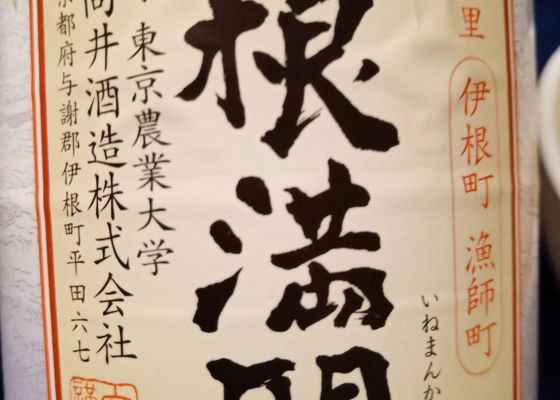 里
伊根町 漁師町
いねまんか
根満開
東京農業大学
向井酒造株式会社
京都府与謝郡伊根町平田六七